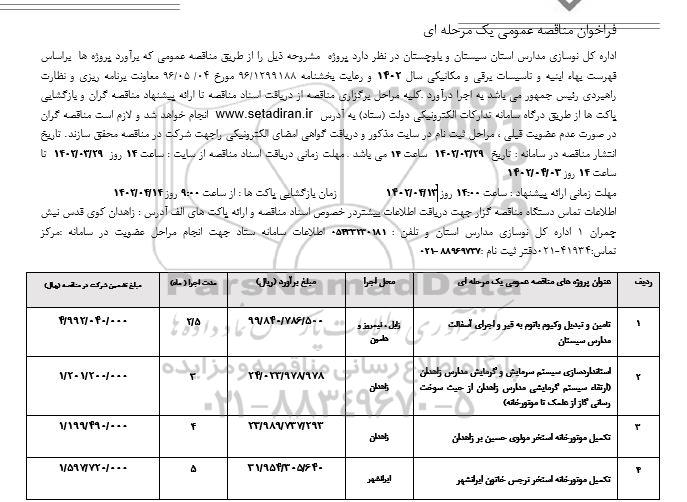 فراخوان مناقصه عمومی یک مرحله ای
اداره کل نوسازی مدارس استان سیستان و بلوچستان در نظر دارد پروژه مشروحه ذیل را از طریق مناقصه عمومی که برآورد پروژه ها براساس
فهرست بهاء ابنیه و تاسیسات برقی و مکانیکی سال ۱۴۰۲ و رعایت بخشنامه ۹۶/۱۲۹۹۱۸۸ مورخ ۰۴/ ۹۶/۰۵ معاونت برنامه ریزی و نظارت
راهبردی رئیس جمهور می باشد به اجرا درآورد .کلیه مراحل برگزاری مناقصه از دریافت اسناد مناقصه تا ارائه پیشنهاد مناقصه گران و بازگشایی
پاکت ها از طریق درگاه سامانه تدارکات الکترونیکی دولت (ستاد) به آدرس www.setadiran.ir انجام خواهد شد و لازم است مناقصه گران
در صورت عدم عضویت قبلی ، مراحل ثبت نام در سایت مذکور و دریافت گواهی امضای الکترونیکی راجهت شرکت در مناقصه محقق سازند. تاریخ
انتشار مناقصه در سامانه : تاریخ ۱۴۰۲/۰۳/۲۹ ساعت ۱۴ می باشد . مهلت زمانی دریافت اسناد مناقصه از سایت : ساعت ۱۴ روز ۱۴۰۲/۰۳/۲۹ تا
ساعت ۱۴ روز ۱۴۰۲/۰۴/۰۳
مهلت زمانی ارائه پیشنهاد : ساعت ۱۴:۰۰ روز ۱۴۰۲/۰۴/۱۳ زمان بازگشایی پاکت ها : از ساعت ۹:۰۰ روز ۱۴۰۲/۰۴/۱۴
اطلاعات تماس دستگاه مناقصه گزار جهت دریافت اطلاعات بیشتردر خصوص اسناد مناقصه و ارائه پاکت های الف آدرس : زاهدان کوی قدس نبش
چمران ۱ اداره کل نوسازی مدارس استان و تلفن : ۰۵۴۳۳۲۳۰۱۸۱ اطلاعات سامانه ستاد جهت انجام مراحل عضویت در سامانه :مرکز
تماس:۴۱۹۳۴-۰۲۱ دفتر ثبت نام :۸۸۹۶۹۷۳۷ -۰۲۱
ردیف عنوان پروژه های مناقصه عمومی یک مرحله ای محل اجرا مبلغ برآورد (ریال) مدت اجرا ( ماه) مبلغ تضمین شرکت در مناقصه (ریال)
۱ تامین و تبدیل وکیوم باتوم به قیر و اجرای آسفالت مدارس سیستان زابل ، نیمروز و هامون ۹۹/۸۴۰/۷۸۶/۵۰۰ ۲/۵ ۴/۹۹۲/۰۴۰/۰۰۰
۲ استانداردسازی سیستم سرمایش و گرمایش مدارس زاهدان (ارتقاء سیستم گرمایشی مدارس زاهدان از حیث سوخت رسانی گاز از علمک تا موتورخانه) زاهدان ۲۴/۰۲۳/۹۷۸/۹۷۸ ۳ ۱/۲۰۱/۲۰۰/۰۰۰
۳ تکمیل موتورخانه استخر مولوی حسین بر زاهدان زاهدان ۲۳/۹۸۹/۷۳۷/۲۹۳ ۴ ۱/۱۹۹/۴۹۰/۰۰۰
۴ تکمیل موتورخانه استخر نرجس خاتون ایرانشهر ایرانشهر ۳۱/۹۵۴/۳۰۵/۶۴۰ ۵ ۱/۵۹۷/۷۲۰/۰۰۰
ParsNamadData
پایگاه اطلاع رسانی مناقصه و مزایده
۰۲۱-۸۸۳۴۹۶۷۰-۵